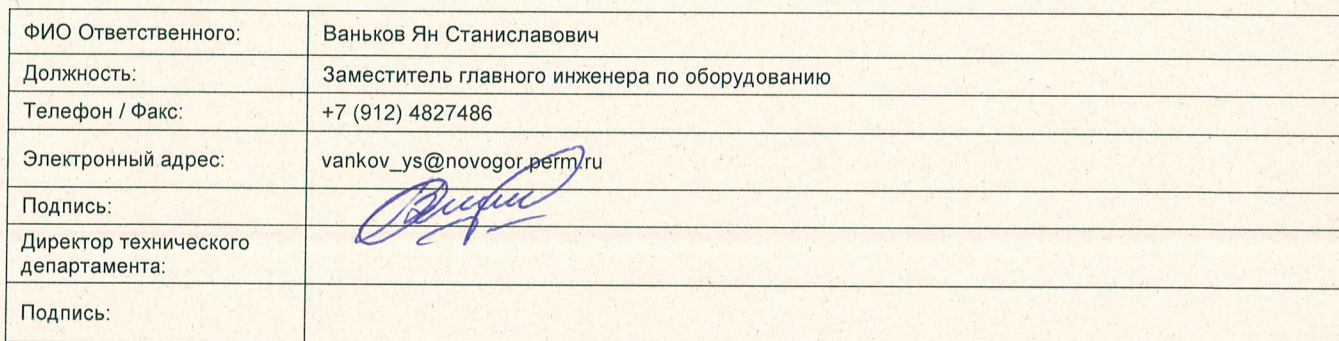 ФИО Ответственного: Ваньков Ян Станиславович
Должность: Заместитель главного инженера по оборудованию
Телефон / Факс: +7 (912) 4827486
Электронный адрес: vankov_ys@novogor.perm.ru
Подпись:
Директор технического
департамента:
Подпись: